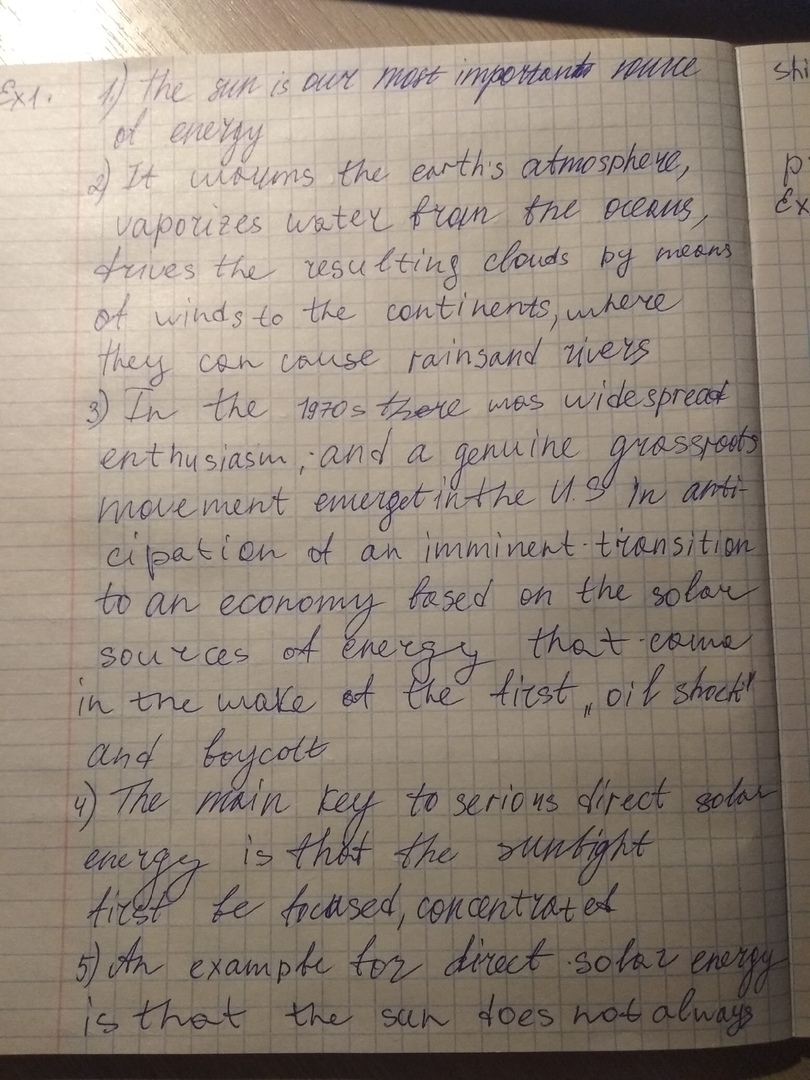 Ex1. 1) The sun is our most important source
of energy
2) It warms the earth's atmosphere,
vaporizes water from the oceans,
drives the resulting clouds by means
of winds to the continents, where
they can cause rainsand rivers
3) In the 1970s there was widespread
enthusiasm, and a genuine grassroots
movement emerget in the U.S in anti-
cipation of an imminent transition
to an economy based on the solar
sources of energy that came
in the wake of the first „oil shock"
and boycott
4) The main key to serious direct solar
energy is that the sunlight
first be focused, concentrated
5) An example for direct solar energy
is that the sun does not always
shi
p
Ex